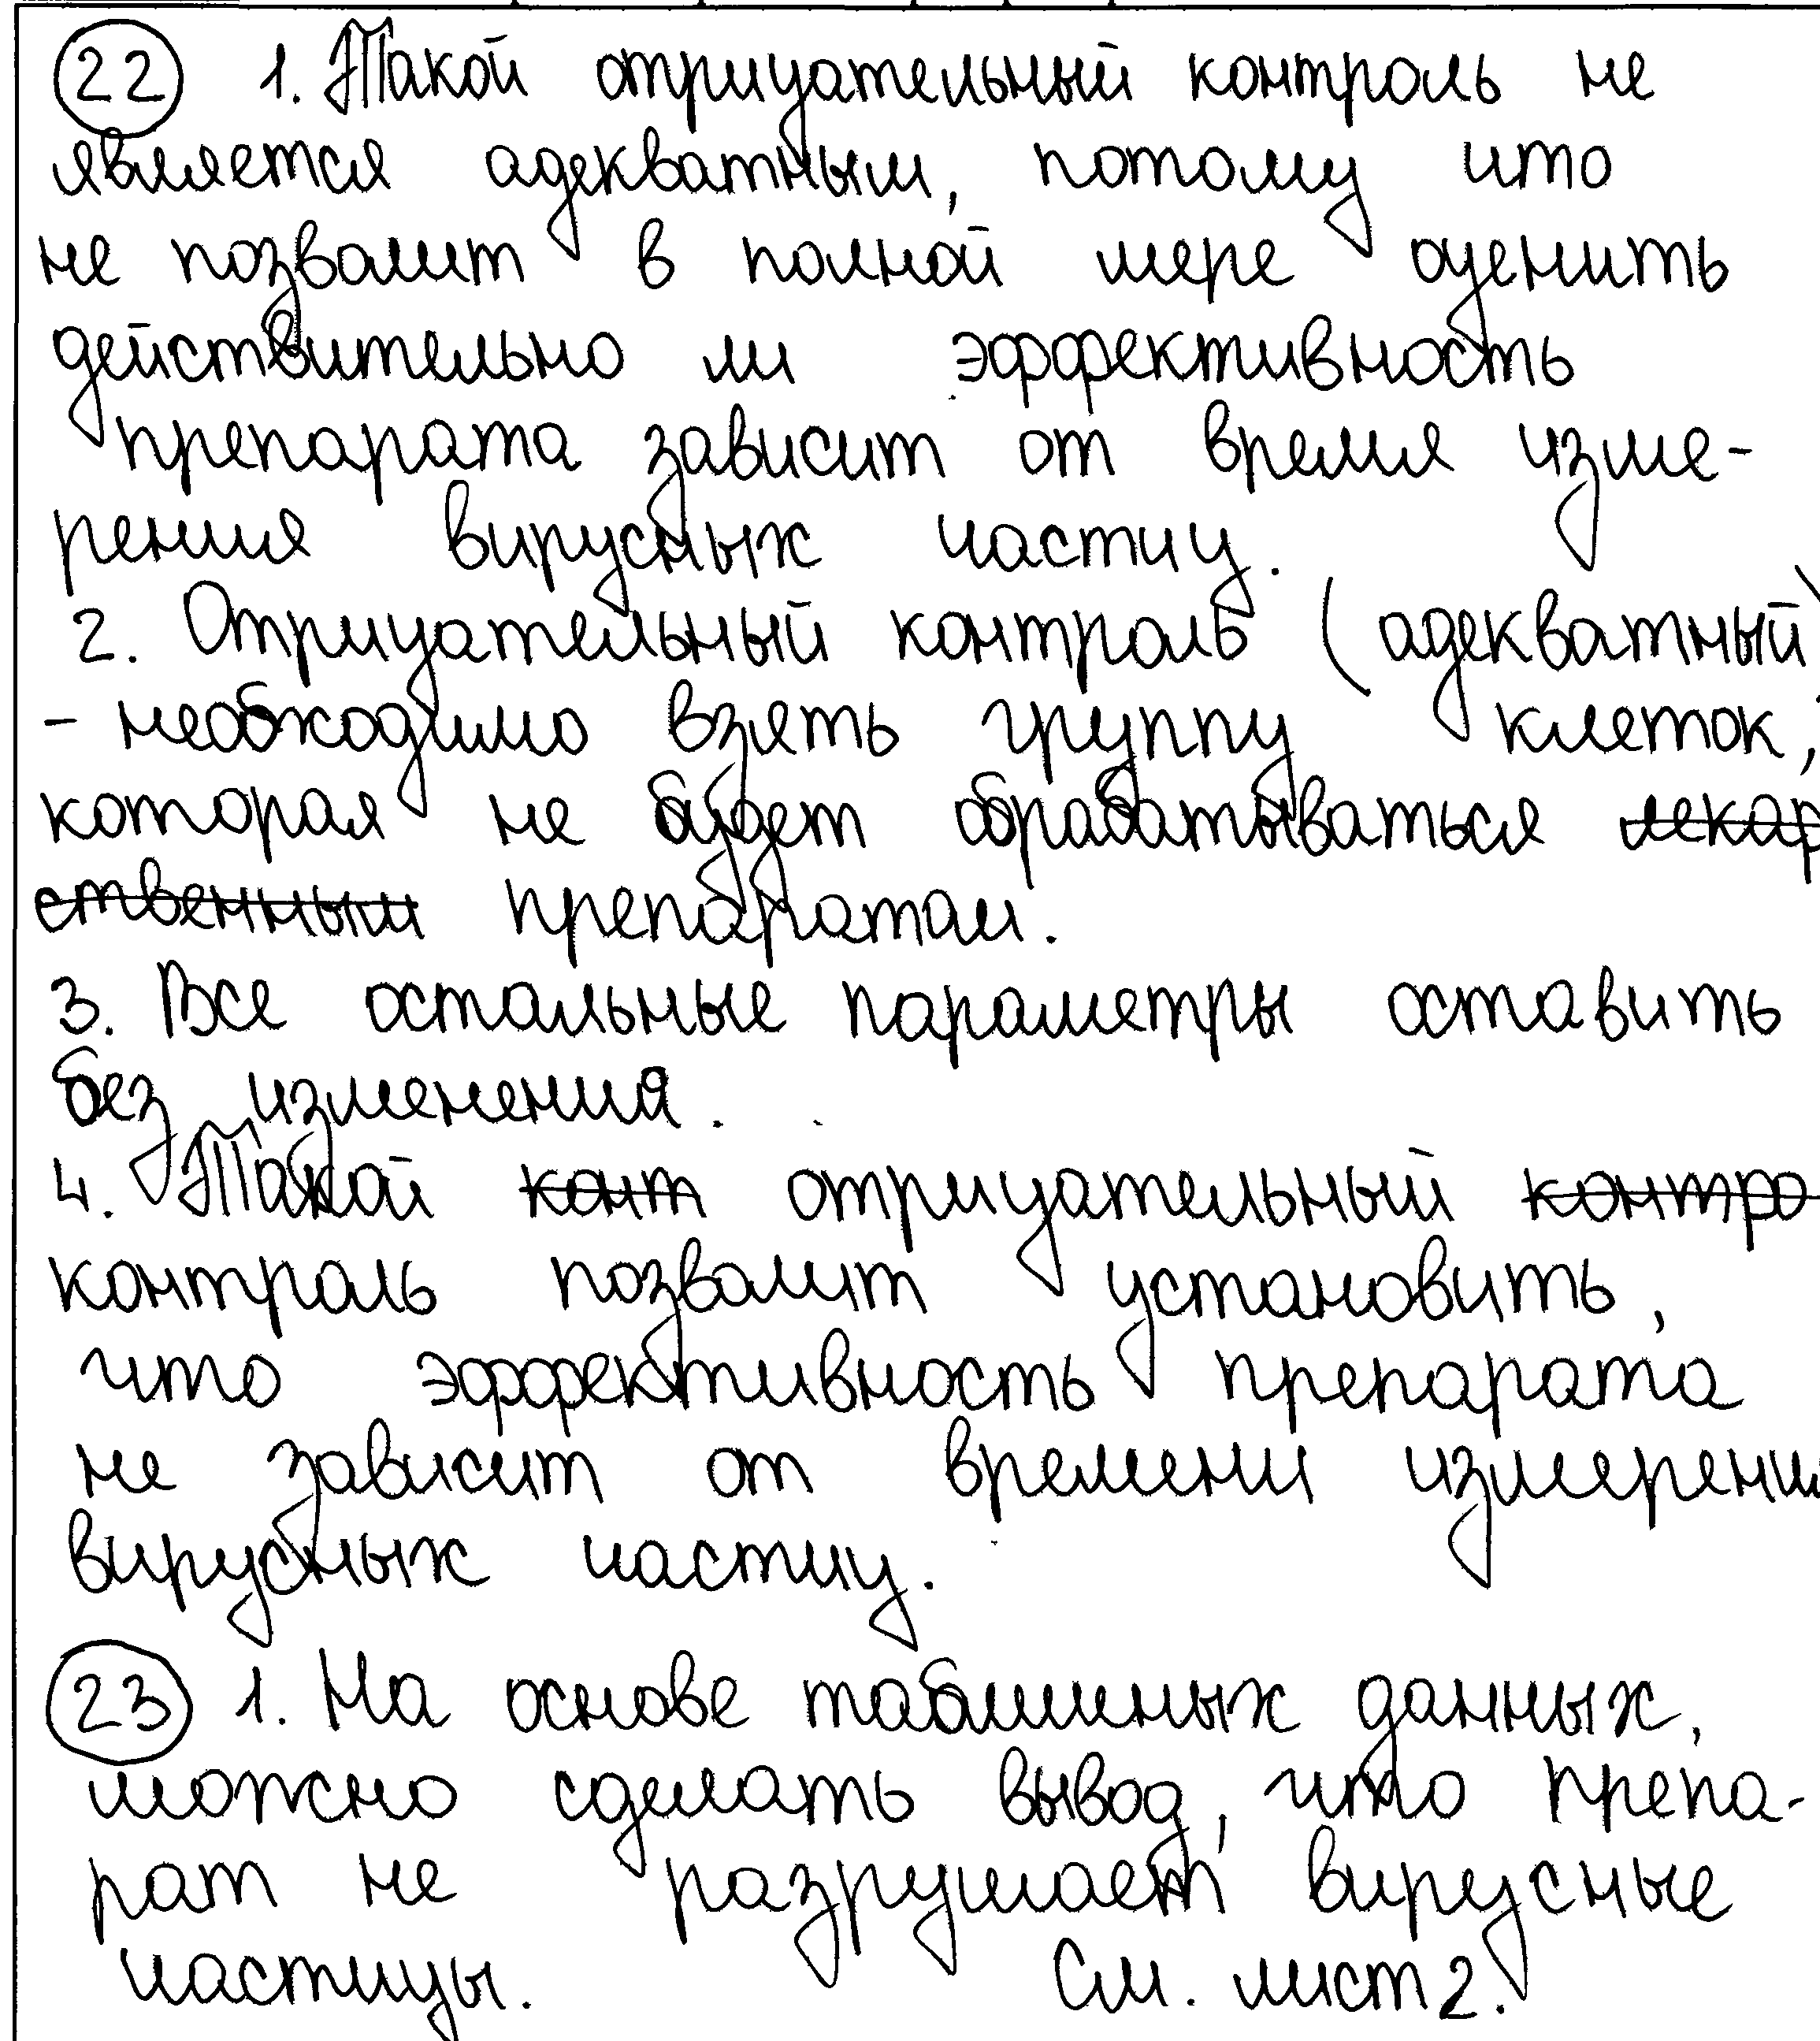 22 1. Такой отрицательный контроль не
является адекватным, потому что
не позволит в полной мере оценить
действительно ли эффективность
препарата зависит от время изме-
рения вирусных частиц.
2. Отрицательный контроль (адекватный)
- необходимо взять группу клеток,
которая не будет обрабатываться лекар
ственным препаратам.
3. Все остальные параметры оставить
без изменения.
4. Такой конт отрицательный контро
контроль позволит установить,
что эффективность препарата
не зависит от времени измерени
вирусных частиц.
23 1. На основе табличных данных,
можно сделать вывод, что препа-
рат не разрушает вирусные
частицы. См. лист 2.